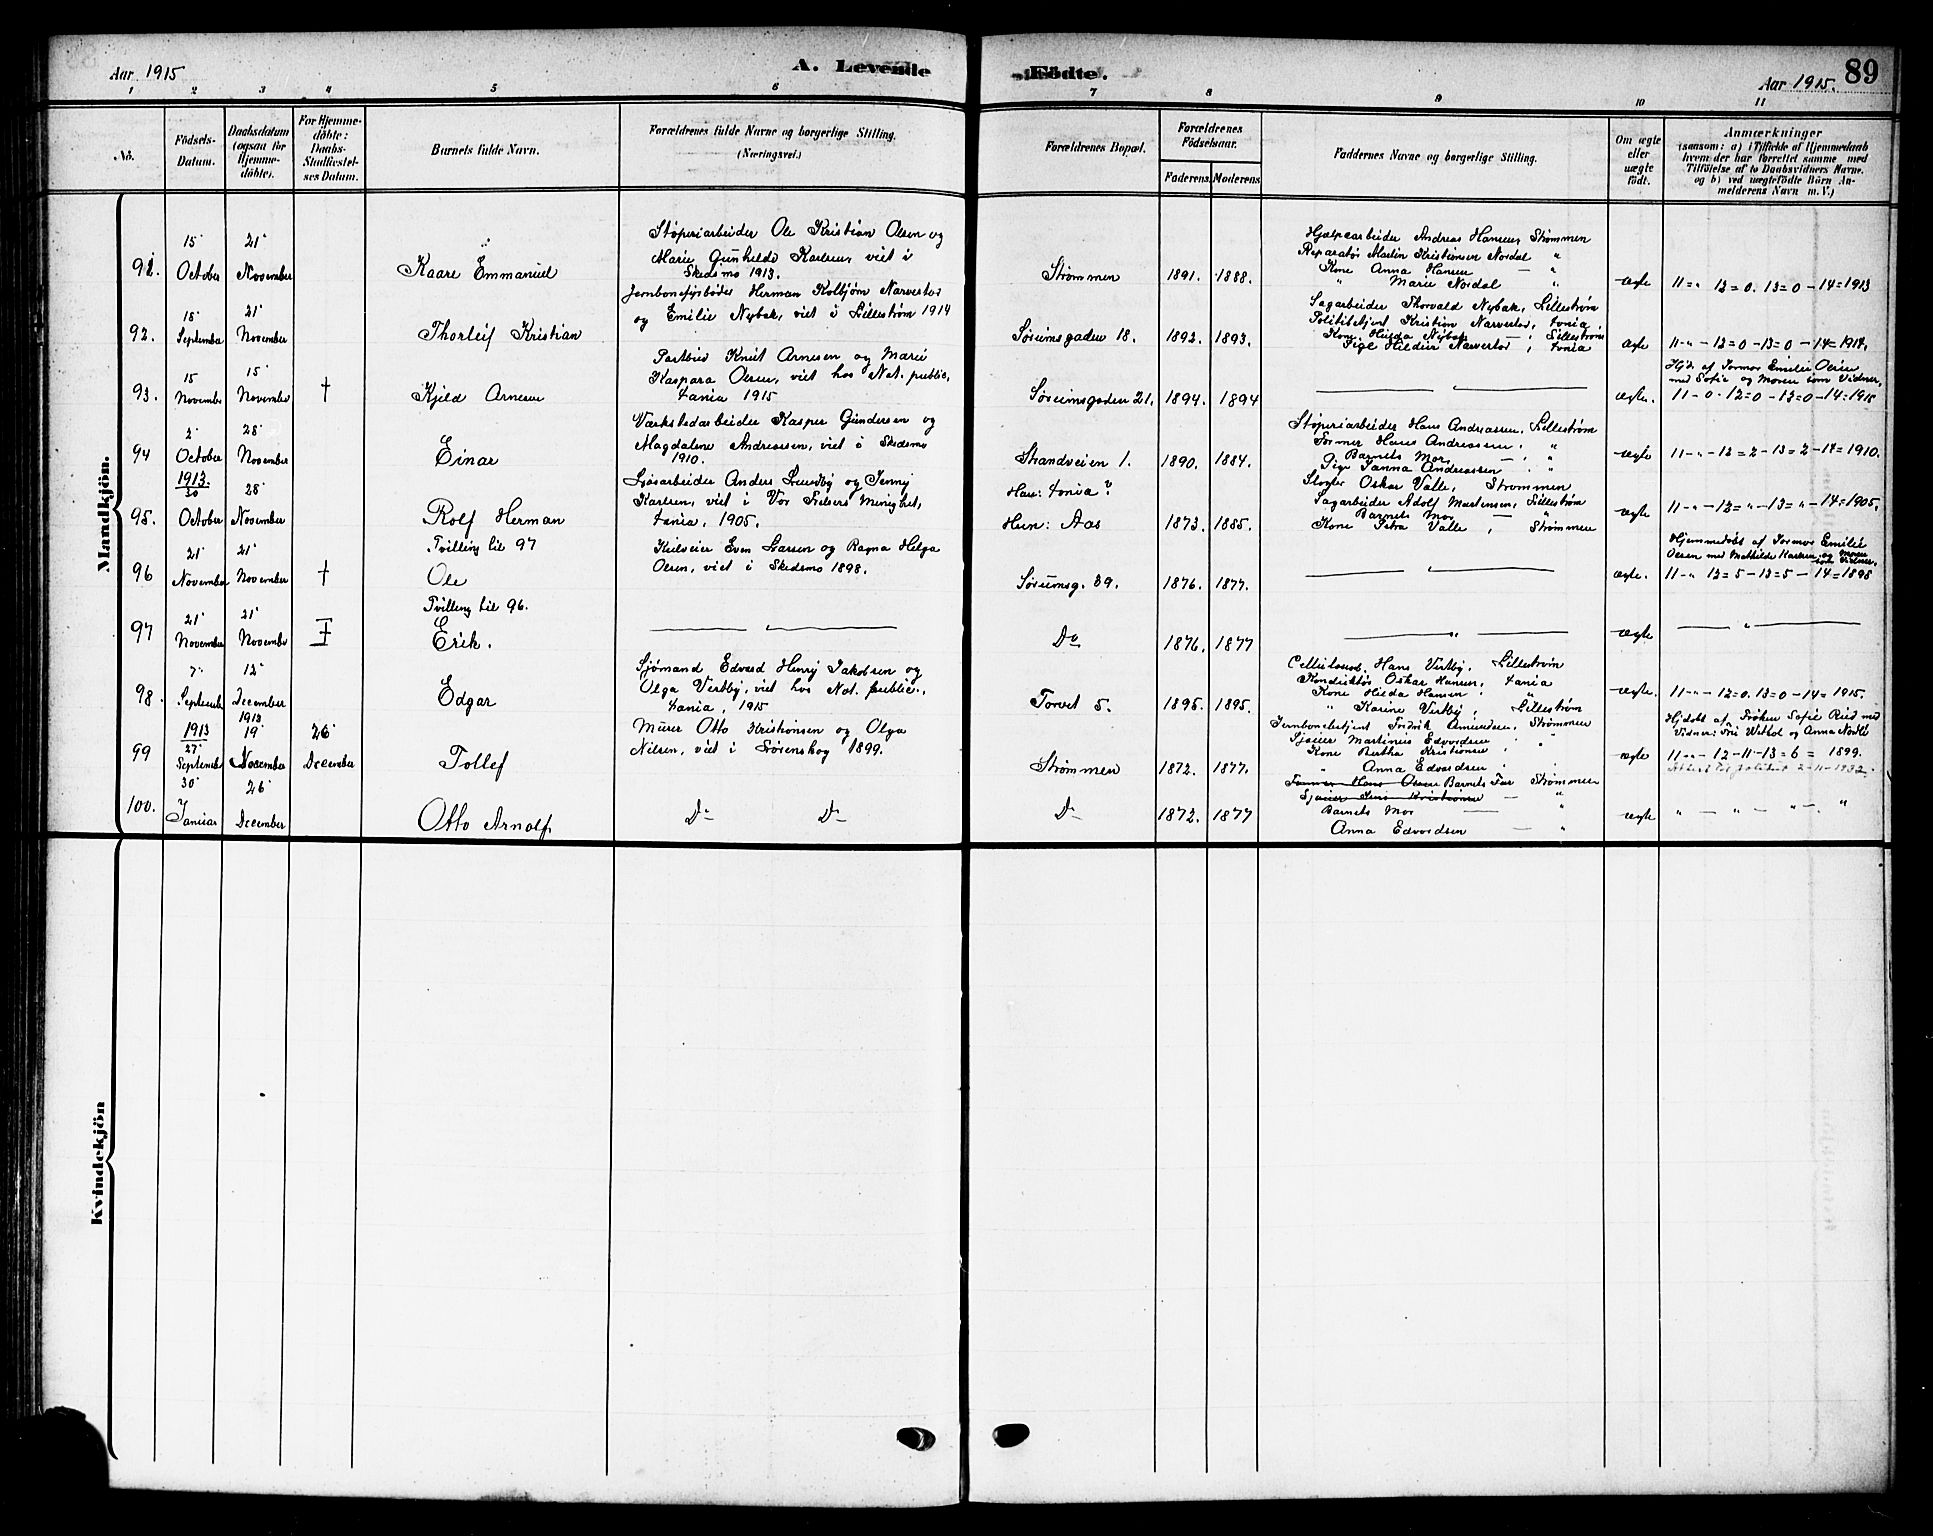 Aar 1915
A. Levende
Födte.
Aar 1915.
89
1 2 3 4 5 6 7 8 9 10 11
No.
Födsels-Datum.
Daabsdatum (ogsaa for Hjemme-döbte).
For Hjemme-döbte: Daabs-Stadfæstel-ses Datum.
Barnets fulde Navn.
Forældrenes fulde Navne og borgerlige Stilling. (Næringsvei.)
Forældrenes Bopæl.
Forældrenes Födselsaar.
Faderens. Moderens
Faddernes Navne og borgerlige Stilling.
Om ægte eller uægte födt.
Anmærkninger
(saasom: a) i Tilfælde af Hjemmedaab
hvem der har forrettet samme med
Tilföielse af to Daabsvidners Navne,
og b) ved uægtefödte Börn An-
melderens Navn m. V.)
Mandkjön.
91. 15' October 21' November
Kaare Emmanuel
Støperiarbeider Ole Kristian Olsen og
Marie Gunhilde Karlsen, viet i
Skedsmo 1913.
Strømmen 1891. 1888.
Hjælpearbeider Andreas Hansen, Strømmen
Reparatør Martin Kristiansen Nordal "
Kone Anna Hansen — "
" Marie Nordal "
ægte 11 = " 12 = 0. 13 = 0 — 14 = 1913
92. 15' September 21' November
Thorleif Kristian
Jernbanefyrbøder Herman Kolbjørn Narvestad
og Emilie Nybak, viet i Lillestrøm 1914
Sørumsgaden 18. 1892. 1893.
Sagarbeider Thorvald Nybak, Lillestrøm
Politibetjent Kristian Narvestad, Xania,
Kone Hilda Nybak — , Lillestrøm
Pige Hildur Narvestad , Xania
ægte 11 - " - 12 = 0 - 13 = 0 - 14 = 1914.
93. 15 November 15' November †
Kjeld Arnesen
Postbud Knut Arnesen og Marie
Kaspara Olsen, viet hos Not. public,
Xania 1915
Sørumsgaden 21. 1894. 1894
— " —
ægte.
Hjd. af Jormor Emilie Olsen
med Sofie og Moren som Vidner,
11 - 0 - 12 = 0 - 13 = 0 - 14 = 1915
94 2' October 28' November
Einar
Værkstedarbeider Kasper Gundersen og
Magdalene Andreassen, viet i Skedsmo
1910.
Strandveien 1. 1890. 1884.
Støperiarbeider Hans Andreassen, Lillestrøm
Former Hans Andreassen, "
Barnets Mor — , "
Pige Janna Andreassen , "
ægte 11 - " - 12 = 2 - 13 = 2 - 14 = 1910.
95. 1913. 30 October 28' November
Rolf Herman
Løsarbeider Anders Lundby og Jenny
Karlsen, viet i Vor Frelsers Menighet,
Xania, 1905.
Han: Xania?
Hun: Aas 1873. 1885.
Slagter Oskar Valle, Strømmen
Sagarbeider Adolf Martinsen, Lillestrøm
Barnets Mor — "
Kone Petra Valle , Strømmen
ægte 11 - " - 12 = " - 13 = " - 14 = 1905.
96 21' November 21' November †
Tvilling til 97
Ole
Kulveier Even Larsen og Ragna Helga
Olsen, viet i Skedsmo 1898.
Sørumsg. 39. 1876. 1877.
— " —
ægte.
Hjemmedøbt af Jormor Emilie
Olsen med Mathilde Karlsen og Moren
som Vidner.
11 - " 12 = 5 - 13 = 5 - 14 = 1898
97 21' November 21' November †
Tvilling til 96.
Erik.
— " —
Do 1876. 1877
— " —
ægte — " —
98. 7' September 12' December
Edgar
Sjømand Edvard Henry Jakobsen og
Olga Vestby, viet hos Not. public.,
Xania, 1915
Torvet 5. 1895. 1895.
Hans Vestby, Lillestrøm
Konduktør Oskar Hansen, Xania
Kone Hilda Hansen , "
" Karine Vestby, Lillestrøm
ægte. 11 - " - 12 = 0. 13 = 0 - 14 = 1915.
99 1913 27' September 1913 19' November 26' December
Tollef
Murer Otto Kristiansen og Olga
Nilsen, viet i Lørenskog 1899.
Strømmen 1872. 1877.
Jernbanebetjent Fredrik Amundsen, Strømmen
Sjauer Martinius Edvardsen , "
Kone Bertha Kristiansen , "
" Anna Edvardsen , "
ægte
Hjdøbt af Frøken Sofie Rud med
Vidner: Fru Withol og Anna Nordli
11 - " - 12 - 11 - 13 = 6 = 1899.
100. 30' Januar 26' December
Otto Arnolf.
Do Do
Do 1872. 1877
Former Hans Olsen Barnets Far Strømmen
Sjauer Jens Kristiansen — "
Barnets Mor — "
Anna Edvardsen — "
ægte " — " — " — . "
Kvindekjön